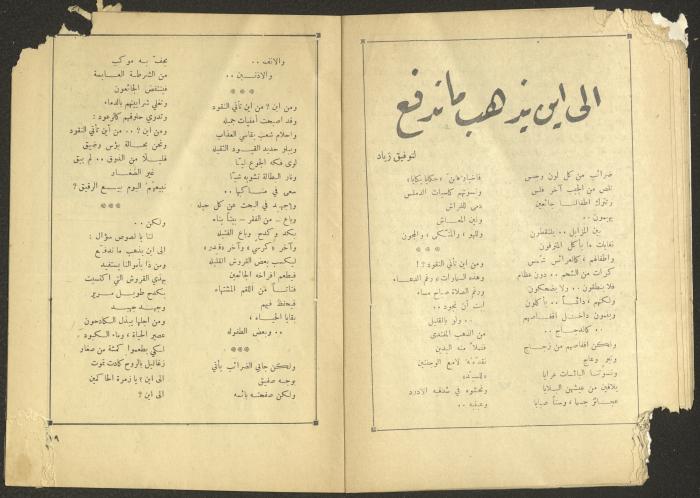 الى اين يذهب ما ندفع
لتوفيق زياد
ضرائب من كل لون وجنس
تلمّ من الجيب آخر فلس
وتترك اطفالنا جائعين
يهيمون ..
بين المزابل .. يلتقطون
نفايات ما يأكل المترفون
واطفالهم ، كالعرائس شمس
كرات من الشحم .. دون عظام
فلا ينطقون .. ولا يضحكون
ولكنهم ، دائماً .. يأكلون
وينمون داخل اقفاصهم
.. كالدجاج ..
ولكن اقفاصهم من زجاج
ومر وعاج
ونسوتنا البائسات عرايا
يلاقين من عيشهن البلايا
عجائز جسما ، وسناً صبايا
واخبارهنّ « حكايا بكايا »
ونسوتهم كاسيات الدمقس
دمى للفراش
ولين المعاش
وللهو ، والتكس ، والمجون
***
ومن اين تأتي النقود ؟ !
وهذه السيارات ، رغم الدعاء
ورغم الصلاة صباح مساء
ابت أن تجود ..
.. ولو بالقليل
من الذهب المفتدى
فتملأ منه اليدين
نقدّمه لامع الوجنتين
« للسيد »
وتحشوه في شدقيه الادرد
وعينيه ..
والانف ..
والاذنين ..
***
ومن اين ؟ من اين تأتي النقود
وقد اصبحت أمنيات جميله
واحلام شعب يقاسي العذاب
ويبلو حديد القيود الثقيله
لوى فكه الجوع ليّا
ونار البطالة تشويه شيّا
سعى في مناكبها ..
واجهد في البحث عن كل حيله
وباع – من الفقر – بيتاً بناه
بكد وكدح وباع الفتيله
وآخر « كرسيّ » وآخر « قدر »
ليكسب بعض القروش القليله
فيطعم افراخه الجائعين
فتاتاً من اللقم المشتهاه
فيحفظ فيهم
بقايا الحياه ،
.. وبعض الطفوله
***
ولكن جابي الضرائب يأتي
بوجه صفيق
ولكن صفحته بائسه
يحف به موكب
من الشرطة العابسة
فينتفض الجائعون
وتغلي شرايينهم بالدماء
وتدوي حلوقهم كالرعود :
ومن اين ؟ .. من أين تأتي النقود
ونحن بحالة بؤس وضيق
فليلاً من الذوق .. لم يبق
غير الصغار
نبيعهمُ اليوم بيع الرقيق ؟
***
ولكن ..
لنا يا لصوص سؤال :
الى اين يذهب ما ندفع
ومن ذا بأموالنا يستفيد
بهذي القروش التي اكتسبت
بكدح طويل مرير
وجهد جهيد
ومن اجلها يبذل الكادحون
عصير الحياة ، وماء الكبود
لكي يطعموا كمشة من صغار
زغاليل بالروح كادت تموت
الى اين ؟ يا زمرة الحاكمين
الى اين ؟
٩